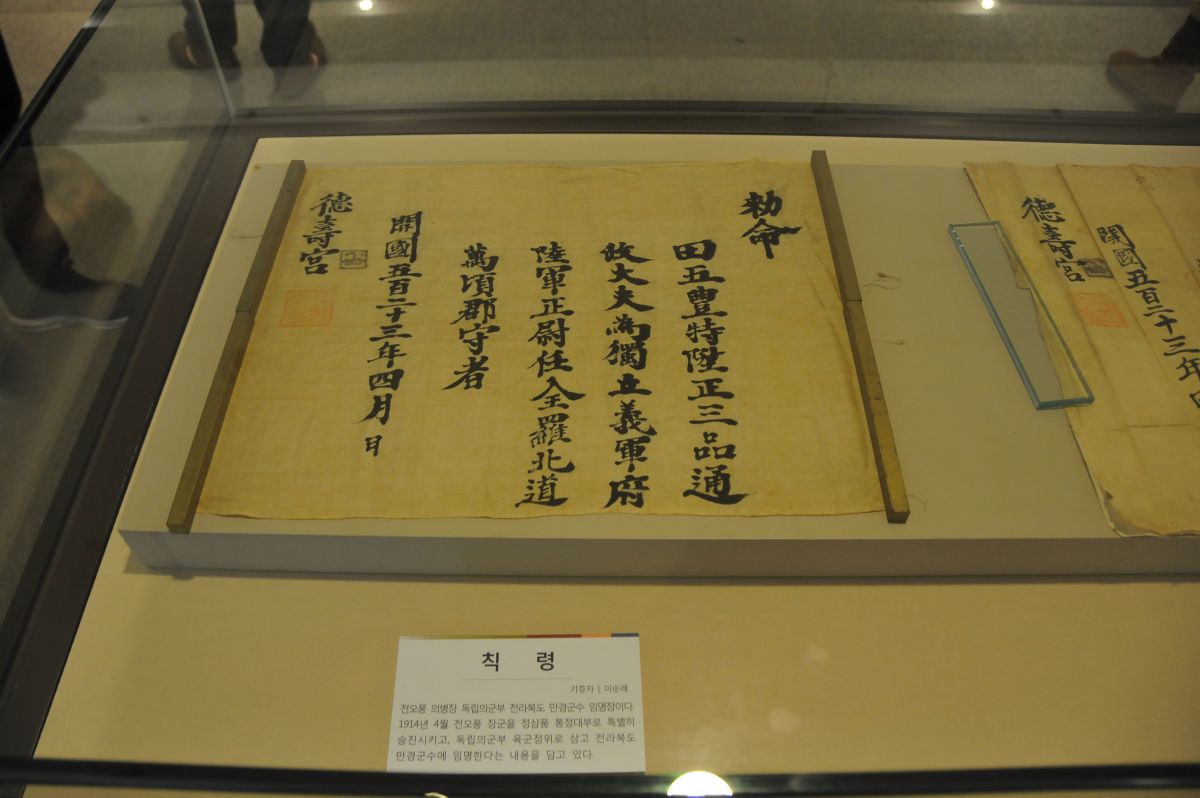 勅命
田五豊特陞正三品通
政大夫為獨立義軍府
陸軍正尉任全羅北道
萬頃郡守者
開國五百二十三年四月 日
德壽宮
開國五百二十三年四
德壽宮
칙 령
기증자 | 이순례
전오풍 의병장 독립의군부 전라북도 만경군수 임명장이다.
1914년 4월 전오풍 장군을 정삼품 통정대부로 특별히
승진시키고, 독립의군부 육군정위로 삼고 전라북도
만경군수에 임명한다는 내용을 담고 있다.